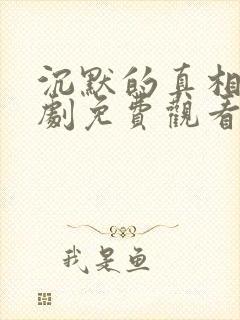 沉默的真相
劇免費觀看
我是鱼